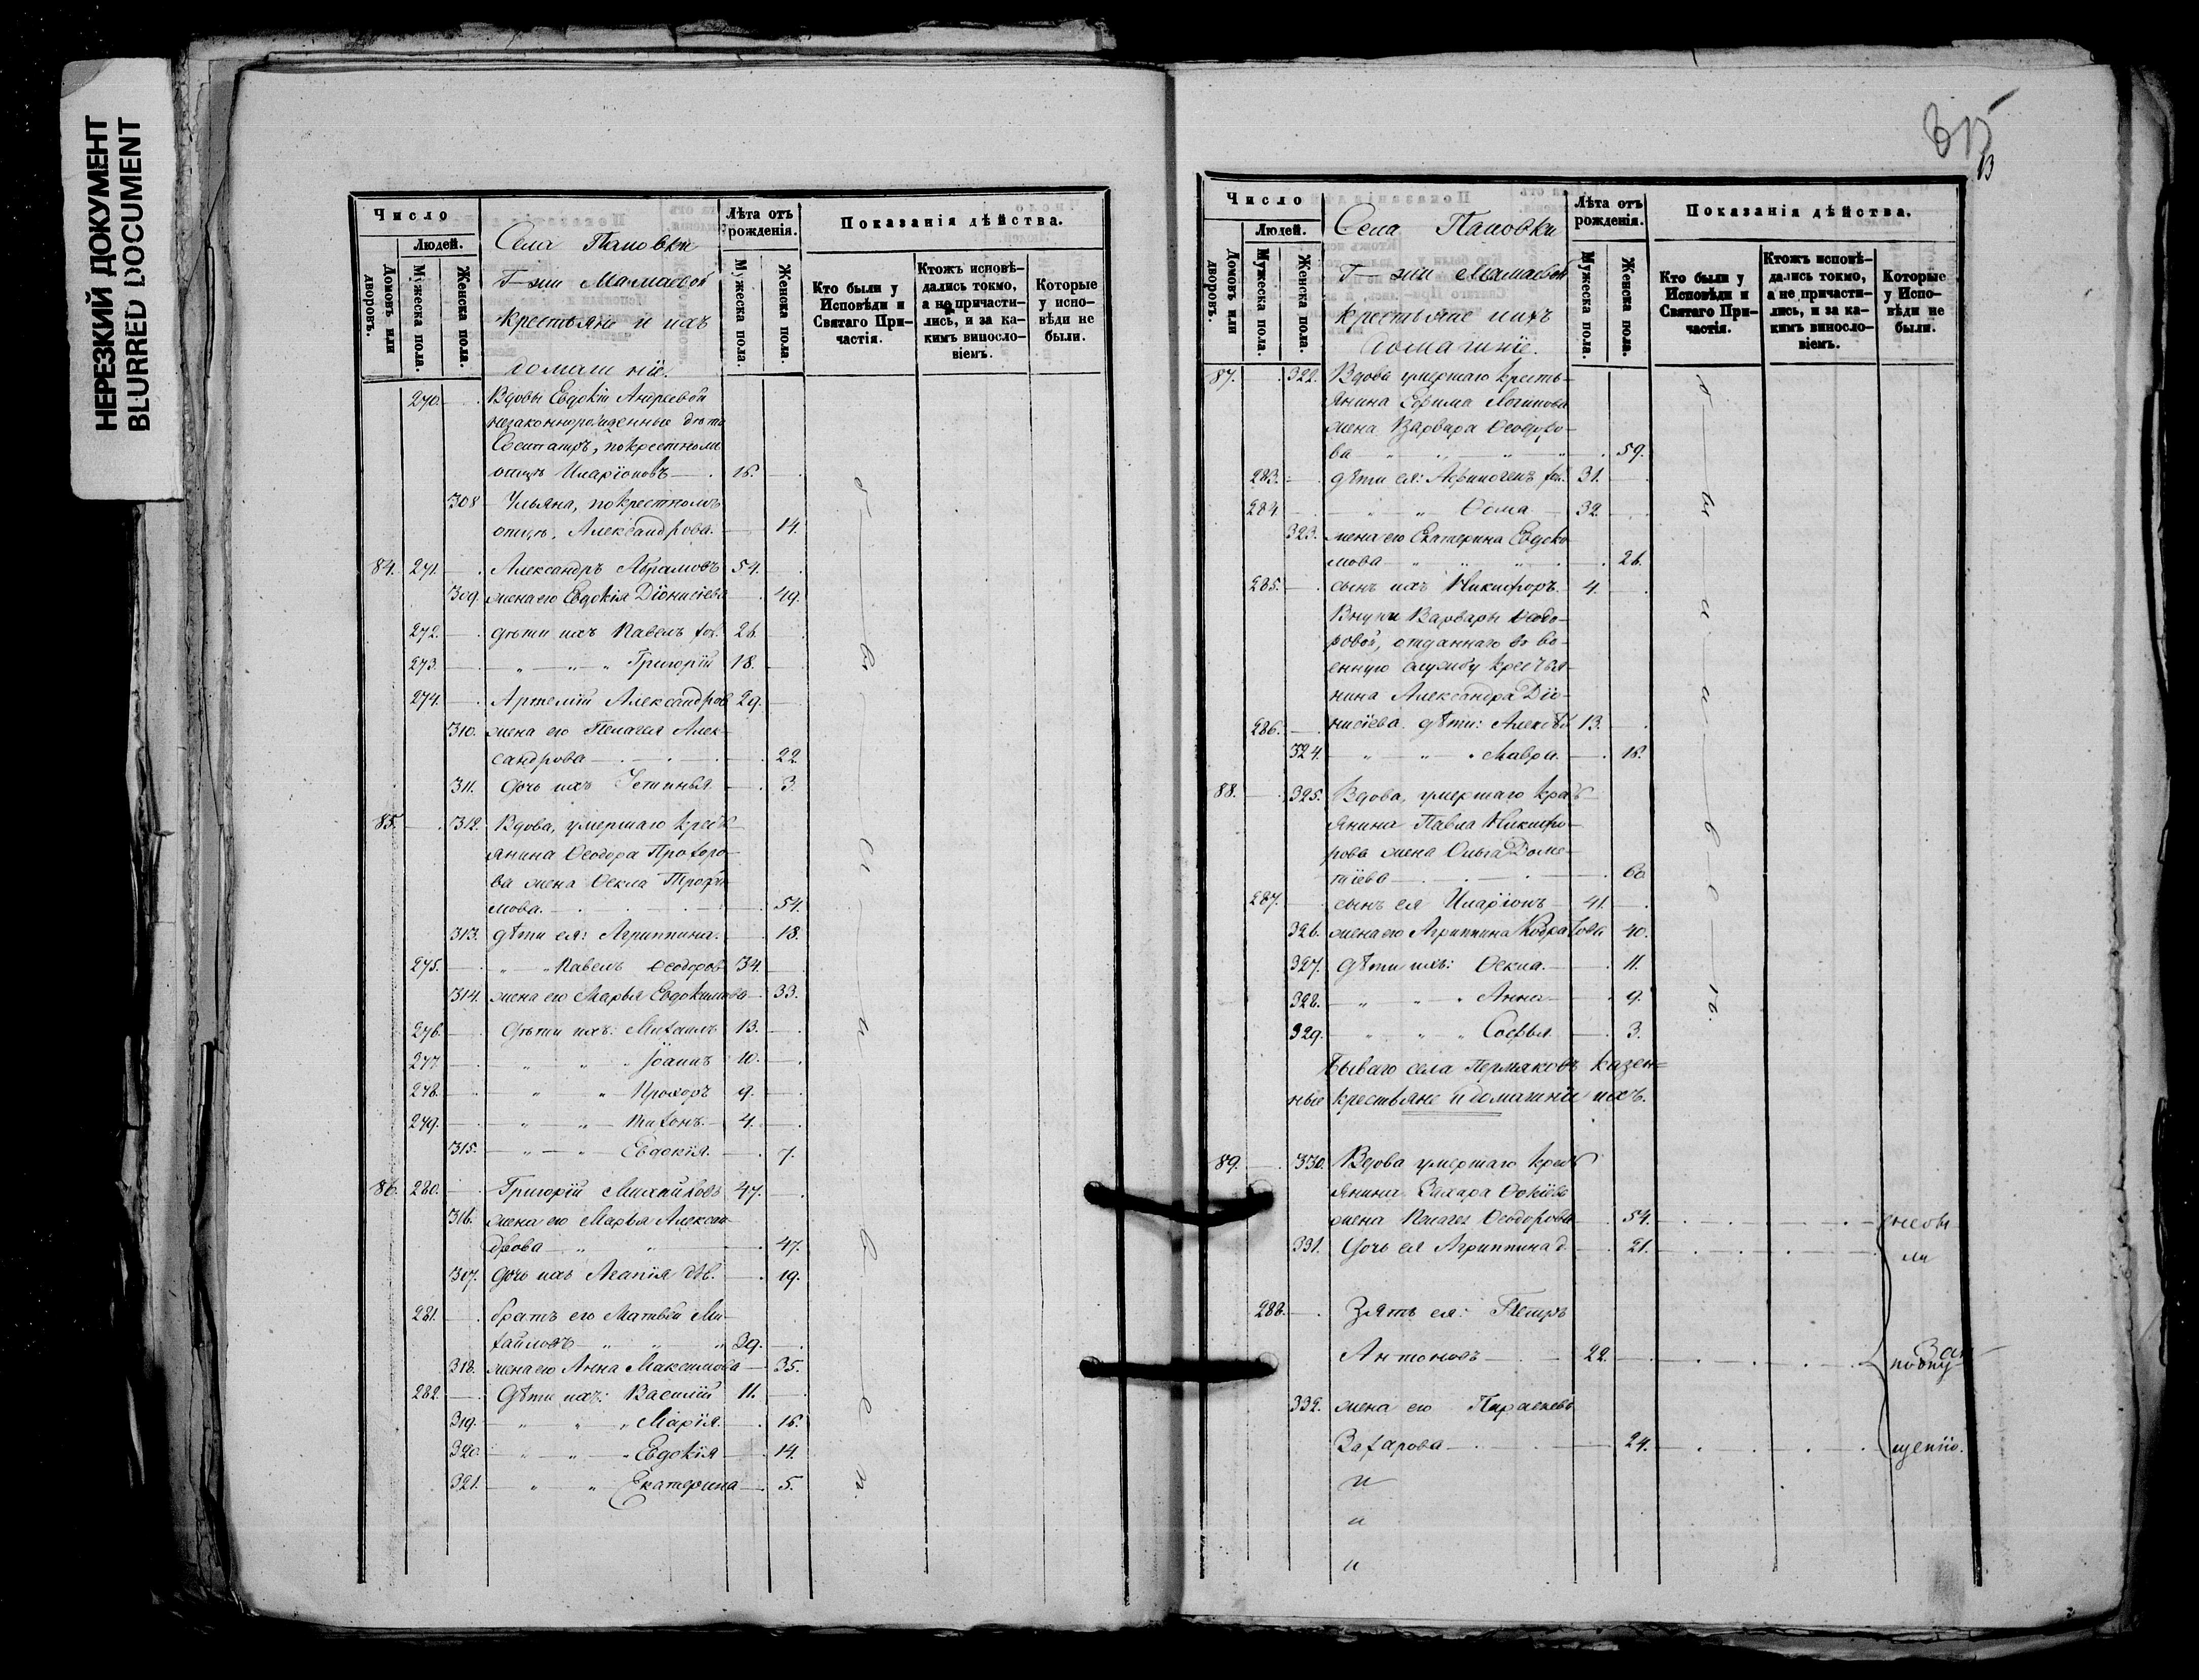 НЕРЕЗКИЙ ДОКУМЕНТ
BLURRED DOCUMENT
Число
Людей.
Домовъ или дворовъ.
Мужеска пола.
Женска пола.
Села Пановки
Г-жи Мамаевой
крестьяне и ихъ
домашніе.
Лѣта отъ рожденія.
Мужеска пола.
Женска пола.
Показанія дѣйства.
Кто были у Исповѣди и Святаго Причастія.
Ктожъ исповѣдались токмо, а не причастились, и за какимъ винословіемъ.
Которые у исповѣди не были.
270. Вдовы Евдокіи Андреевой
незаконнорожденные дѣти
по крестному
отцѣ Иларіоновъ 16.
308 Ульяна, по крестномъ
отцѣ, Александрова. 14.
84. 271. Александръ Абрамовъ 54.
309. жена его Евдокія Діонисіева 49.
272. дѣти ихъ Павелъ хол. 26.
273. " " Григорій 18.
274. Артемій Александровъ 29.
310. жена его Пелагея Алек-
сандрова 22
311. дочь ихъ Устинья 3.
85. 312. Вдова, умершаго крест-
янина Ѳеодора Прохоро-
ва жена Ѳекла Трофи-
мова. 54.
313. дѣти ея: Агриппина. 18.
275. " Павелъ Ѳеодоровъ 34.
314. жена его Марья Евдокимова 33.
276. Дѣти ихъ: Михаилъ 13.
277. " " Іоаннъ 10.
278. " " Прохоръ 9.
279. " " Тихонъ. 4.
315. " " Евдокія. 7.
86. 280. Григорій Михайловъ 47.
316. жена его Марья Алексан-
дрова " " 47.
317. дочь ихъ Агапія дѣв. 19.
281. братъ его Матвѣй Ми-
хайловъ " " " 39.
318. жена его Анна Максимова 35.
282. Дѣти ихъ: Василій 11.
319. " " " Марія. 16.
320. " " " Евдокія 14.
321. " " Екатерина 5.
315
13
Число
Людей.
Домовъ или дворовъ.
Мужеска пола.
Женска пола.
Села Пановки
Г-жи Мамаевой
крестьяне ихъ
домашніе.
Лѣта отъ рожденія.
Мужеска пола.
Женска пола.
Показанія дѣйства.
Кто были у Исповѣди и Святаго Причастія.
Ктожъ исповѣдались токмо, а не причастились, и за какимъ винословіемъ.
Которые у Исповѣди не были.
87. 322. Вдова умершаго кресть-
янина Ефима Логинова
жена Варвара Ѳеодоро-
ва " " " " 59.
283. дѣти ея: Аѳиногенъ хол. 31.
284 " " Ѳома 32.
323. жена его Екатерина Евдоки
мова " " " 26.
285. сынъ ихъ Никифоръ. 4.
Внуки Варвары Ѳеодо-
ровой, отданнаго въ во-
енную службу крестья-
нина Александра Діо-
286. нисіева. дѣти: Алексѣй 13.
324. " " " Мавра. 16.
88. 325. Вдова, умершаго крест-
янина Павла Никифо-
рова жена Ольга Доме-
тіева 60
287. сынъ ея Иларіонъ 41.
326. жена его Агриппина Кодратова 40.
327. Дѣти ихъ: Ѳекла. 11.
328. " " " Анна 9.
329. " " " Софья 3.
Бываго села Пермяковъ казен-
ные крестьяне и домашніе ихъ.
89. 330. Вдова умершаго крест-
янина Захара Ѳокіева
жена Пелагея Ѳеодорова 54. не бы
331. Дочь ея Агриппина д. 21. ли
288. Зять ея: Петръ
Антоновъ 22. За
332. жена его Параскева
Захарова 24. щенію.
и
и
и